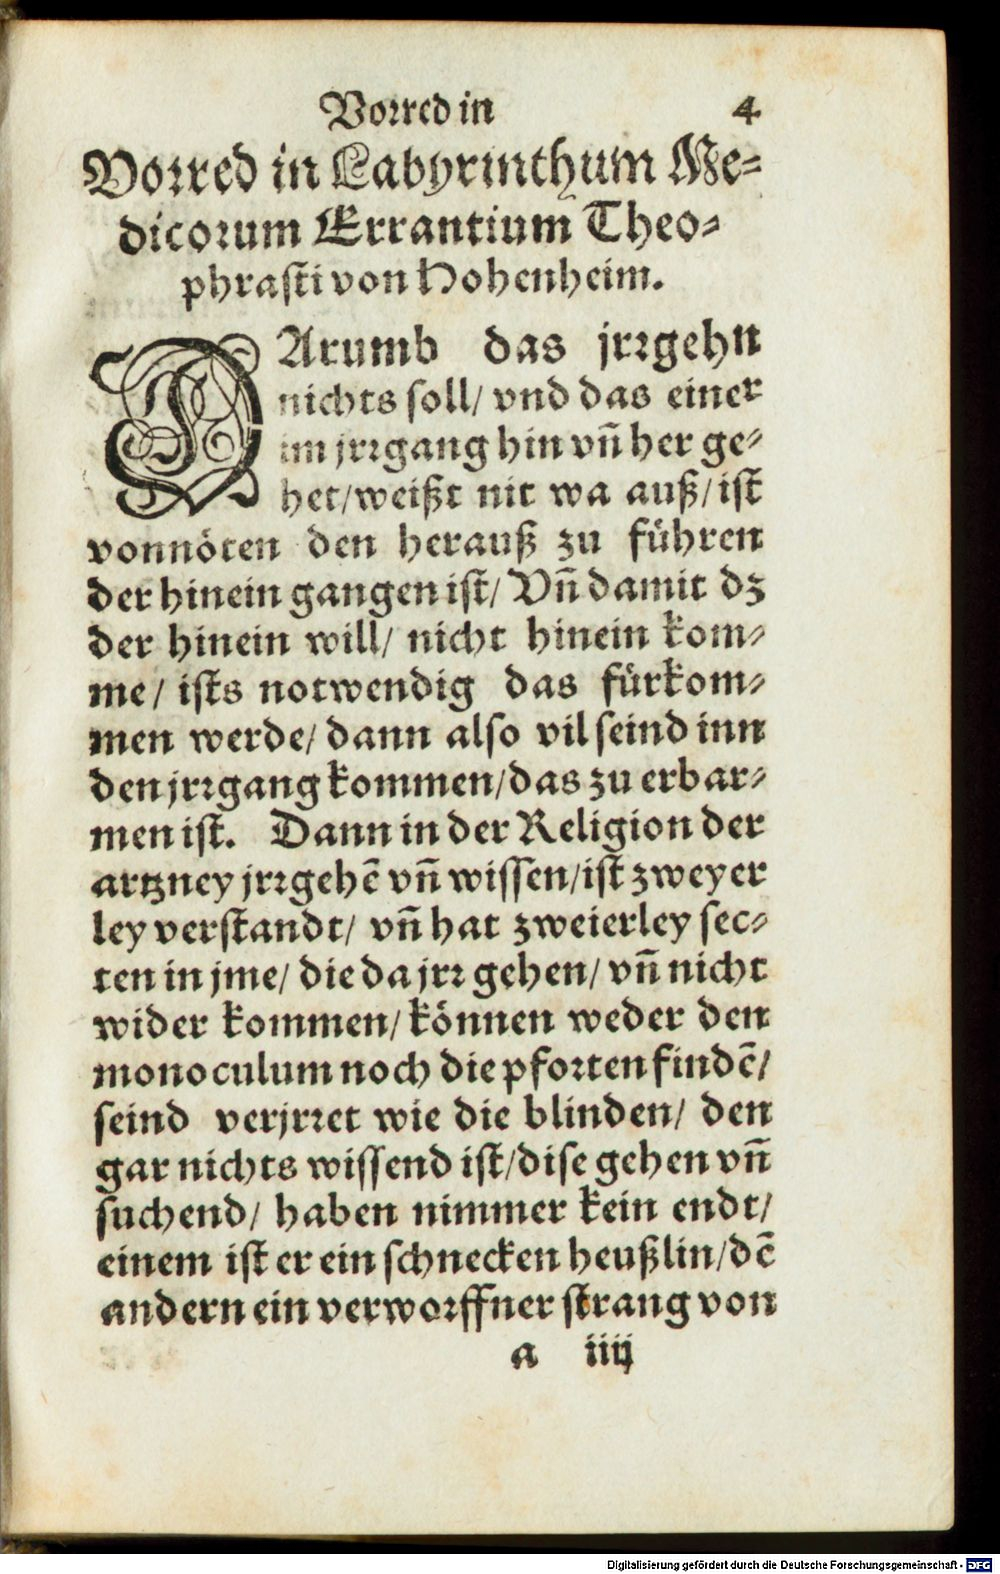 Vorred in 4
Vorred in Labyrinthum Me⸗
dicorum Errantium Theo⸗
phrasti von Hohenheim.
DArumb das jrrgehn
nichts soll/ vnd das einer
im jrrgang hin vñ her ge⸗
het/weißt nit wa auß/ist
vonnöten den herauß zu führen
der hinein gangen ist/ Vñ damit dz
der hinein will/ nicht hinein kom⸗
me/ ists notwendig das fürkom⸗
men werde/ dann also vil seind inn
den jrrgang kommen/das zu erbar⸗
men ist. Dann in der Religion der
artzney jrrgehē vñ wissen/ist zweyer
ley verstandt/ vñ hat zweierley sec⸗
ten in jme/ die da jrr gehen/ vñ nicht
wider kommen/ können weder den
monoculum noch die pforten findē/
seind verjrret wie die blinden/ den
gar nichts wissend ist/dise gehen vñ
suchend/ haben nimmer kein endt/
einem ist er ein schnecken heußlin/dē
andern ein verworffner strang von
a iiij
Digitalisierung gefördert durch die Deutsche Forschungsgemeinschaft - DFG